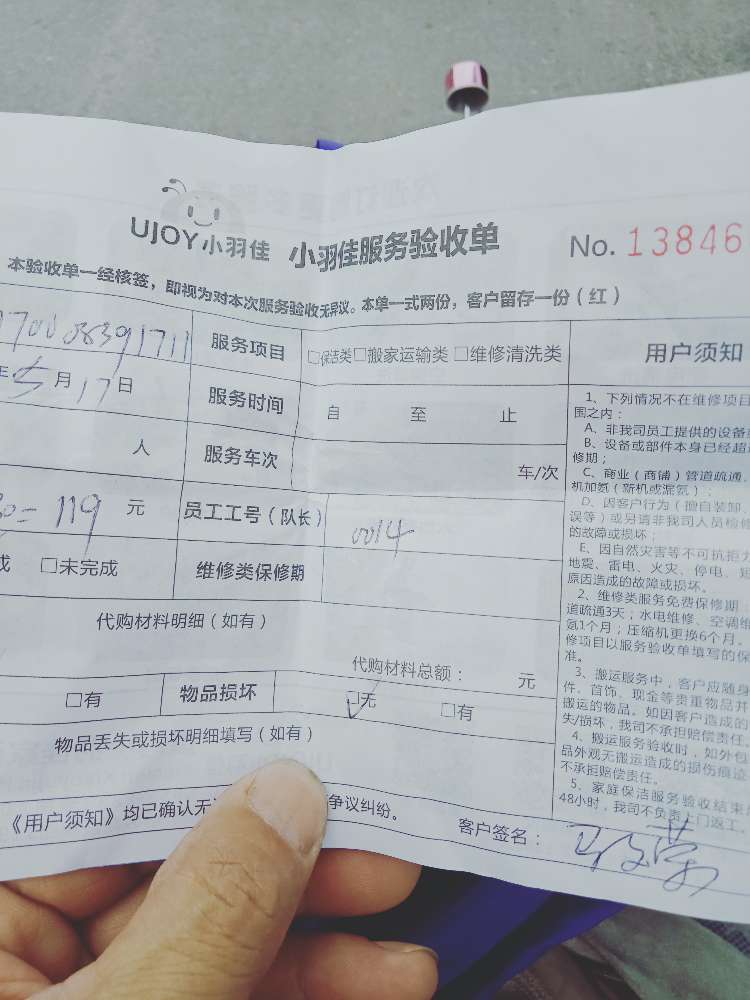 UJOY小羽佳 小羽佳服务验收单 No. 13846
本验收单一经核签，即视为对本次服务验收无异议。本单一式两份，客户留存一份（红）
服务项目 □保洁类□搬家运输类□维修清洗类
年5月17日 服务时间 自 至 止
人 服务车次 车/次
=119 元 员工工号（队长） 0014
□未完成 维修类保修期
代购材料明细（如有）
代购材料总额： 元
□有 物品损坏 □无 □有
物品丢失或损坏明细填写（如有）
《用户须知》均已确认无 争议纠纷。
客户签名：
用户须知
1、下列情况不在维修项目
围之内：
A、非我司员工提供的设备
B、设备或部件本身已经超
修期；
C、商业（商铺）管道疏通、
机加氨（新机或漏氨）；
D、因客户行为（擅自装卸、
误等）或另请非我司人员检修
的故障或损坏；
E、因自然灾害等不可抗拒力
地震、雷电、火灾、停电、
原因造成的故障或损坏。
2、维修类服务免费保修期
道疏通3天；水电维修、空调维
氨1个月；压缩机更换6个月。
修项目以服务验收单填写的保
准。
3、搬运服务中，客户应随身
件、首饰、现金等贵重物品并
搬运的物品。如因客户造成的
失/损坏，我司不承担赔偿责任。
4、搬运服务验收时，如外包
品外观无搬运造成的损伤痕迹
不承担赔偿责任。
5、家庭保洁服务验收结束
48小时，我司不负责上门返工。